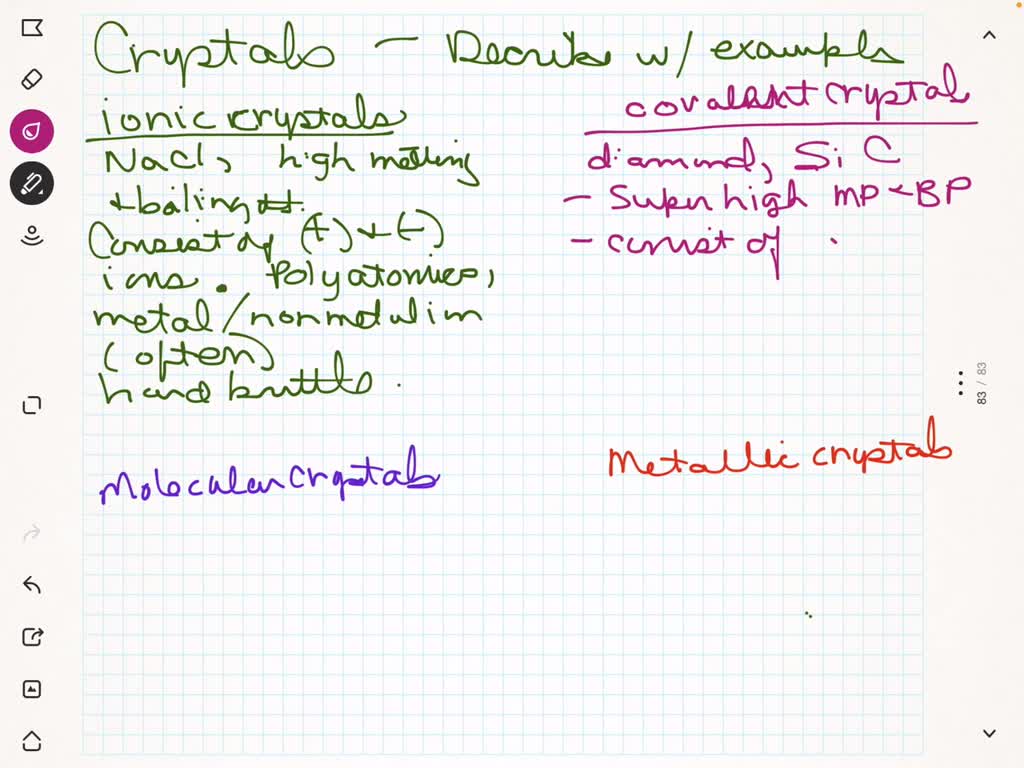 Crystals – Describe w/ examples
ionic crystals
NaCl, high melting
+ boiling
Consist of (+) + (-)
ions. Polyatomics,
metal/nonmetal
(often)
hard brittle.
covalent crystal
diamond, SiC
- Super high MP + BP
- consist of
Molecular Crystals
Metallic crystals
83 / 83